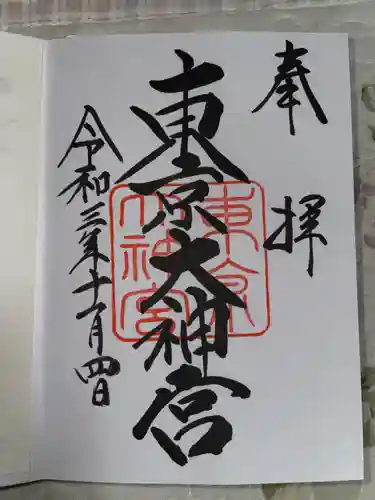 奉拝
東京大神宮
東京大神宮
令和三年十一月四日